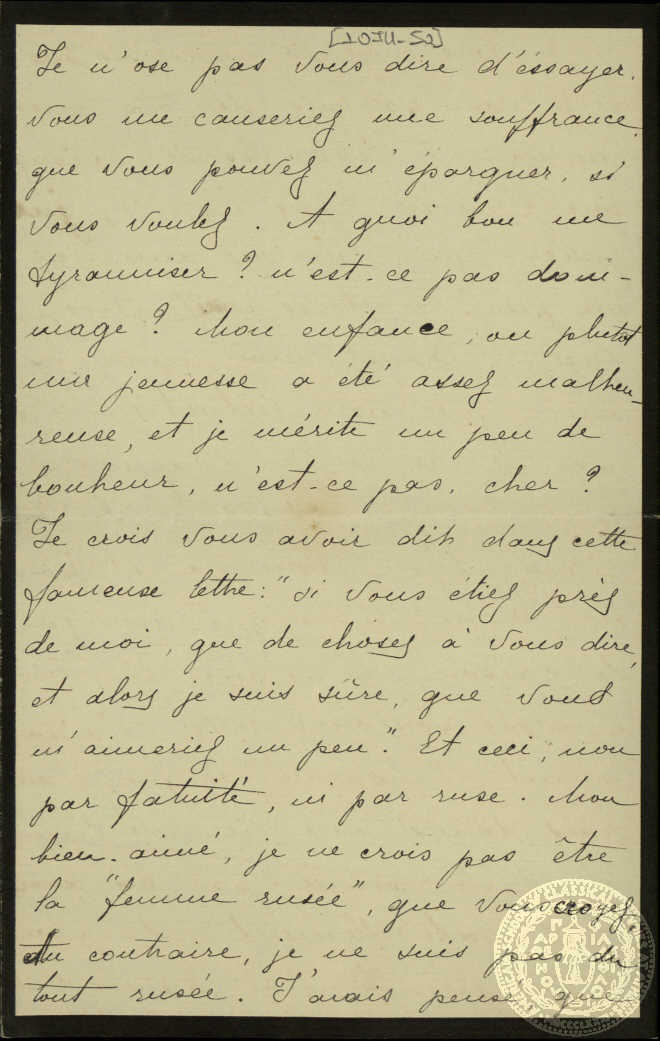 Je n'ose pas vous dire d'éssayer.
Vous me causeriez une souffrance,
que vous pouvez m'épargner, si
vous voulez. A quoi bon me
tyranniser? n'est-ce pas dom-
mage? Mon enfance, ou plutot
ma jeunesse a été assez malheu-
reuse, et je mérite un peu de
bonheur, n'est-ce pas, cher?
Je crois vous avoir dit dans cette
fameuse lettre: "si vous étiez près
de moi, que de choses à vous dire,
et alors je suis sûre, que vous
m'aimeriez un peu." Et ceci, non
par fatuité, ni par ruse. Mon
bien-aimé, je ne crois pas être
la "femme rusée", que vous croyez,
Au contraire, je ne suis pas du
tout rusée. J'avais pensé que